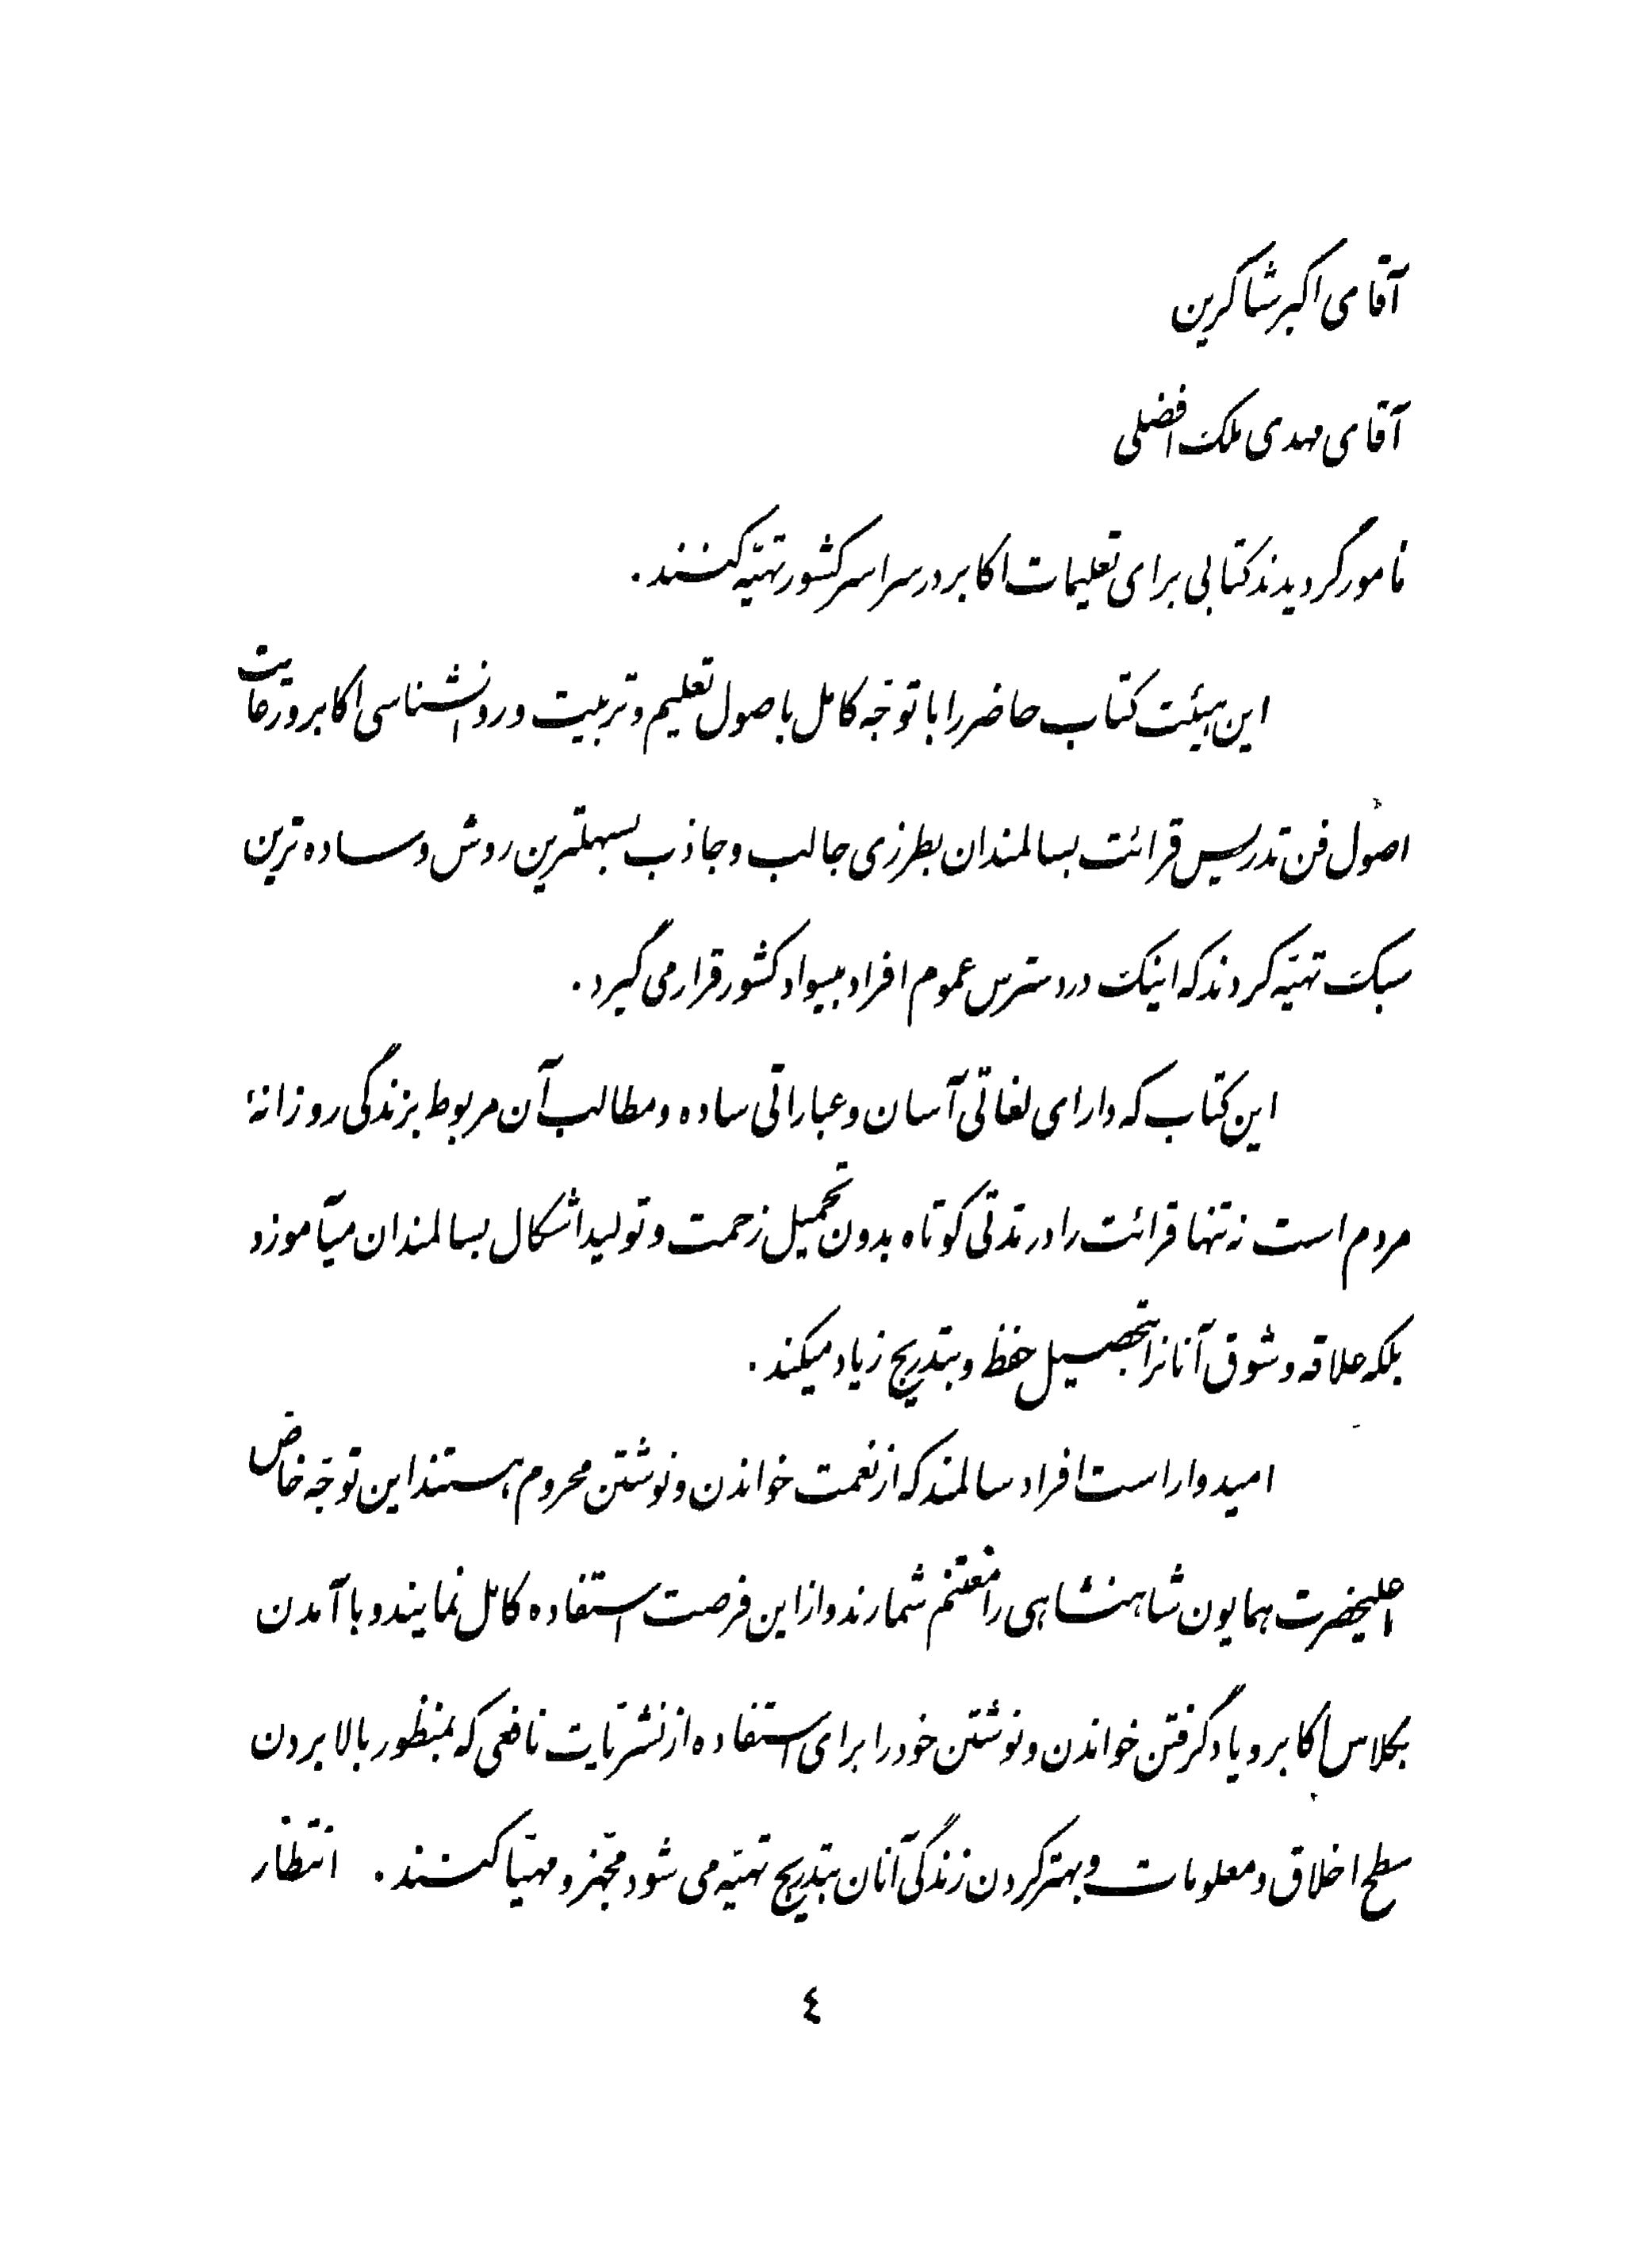 آقای اکبر شاکرین
آقای مهدی ملک افضلی
مامور گردیدند کتابی برای تعلیمات اکابر در سراسر کشور تهیّه کنند.
این هیئت کتاب حاضر را با توجّه کامل باصول تعلیم و تربیت و روانشناسی اکابر و رعایت
اصول فن تدریس قرائت بسالمندان بطرزی جالب و جاذب بسهلترین روش و ساده ترین
سبک تهیّه کردند که اینک در دسترس عموم افراد بیسواد کشور قرار می گیرد.
این کتاب که دارای لغاتی آسان و عباراتی ساده و مطالب آن مربوط بزندگی روزانهٔ
مردم است نه تنها قرائت را در مدّتی کوتاه بدون تحمیل زحمت و تولید اشکال بسالمندان میآموزد
بلکه علاقه و شوق آنانرا بتحصیل حفظ و بتدریج زیاد میکند.
امیدوار است افراد سالمند که از نعمت خواندن و نوشتن محروم هستند این توجّه خاصّ
اعلیحضرت همایون شاهنشاهی را مغتنم شمارند و از این فرصت استفاده کامل نمایند و با آمدن
بکلاس اکابر و یاد گرفتن خواندن و نوشتن خود را برای استفاده از نشریّات نافعی که بمنظور بالا بردن
سطح اخلاق و معلومات و بهتر کردن زندگی آنان بتدریج تهیّه می شود مجّهز و مهیّا کنند. انتظار
٤